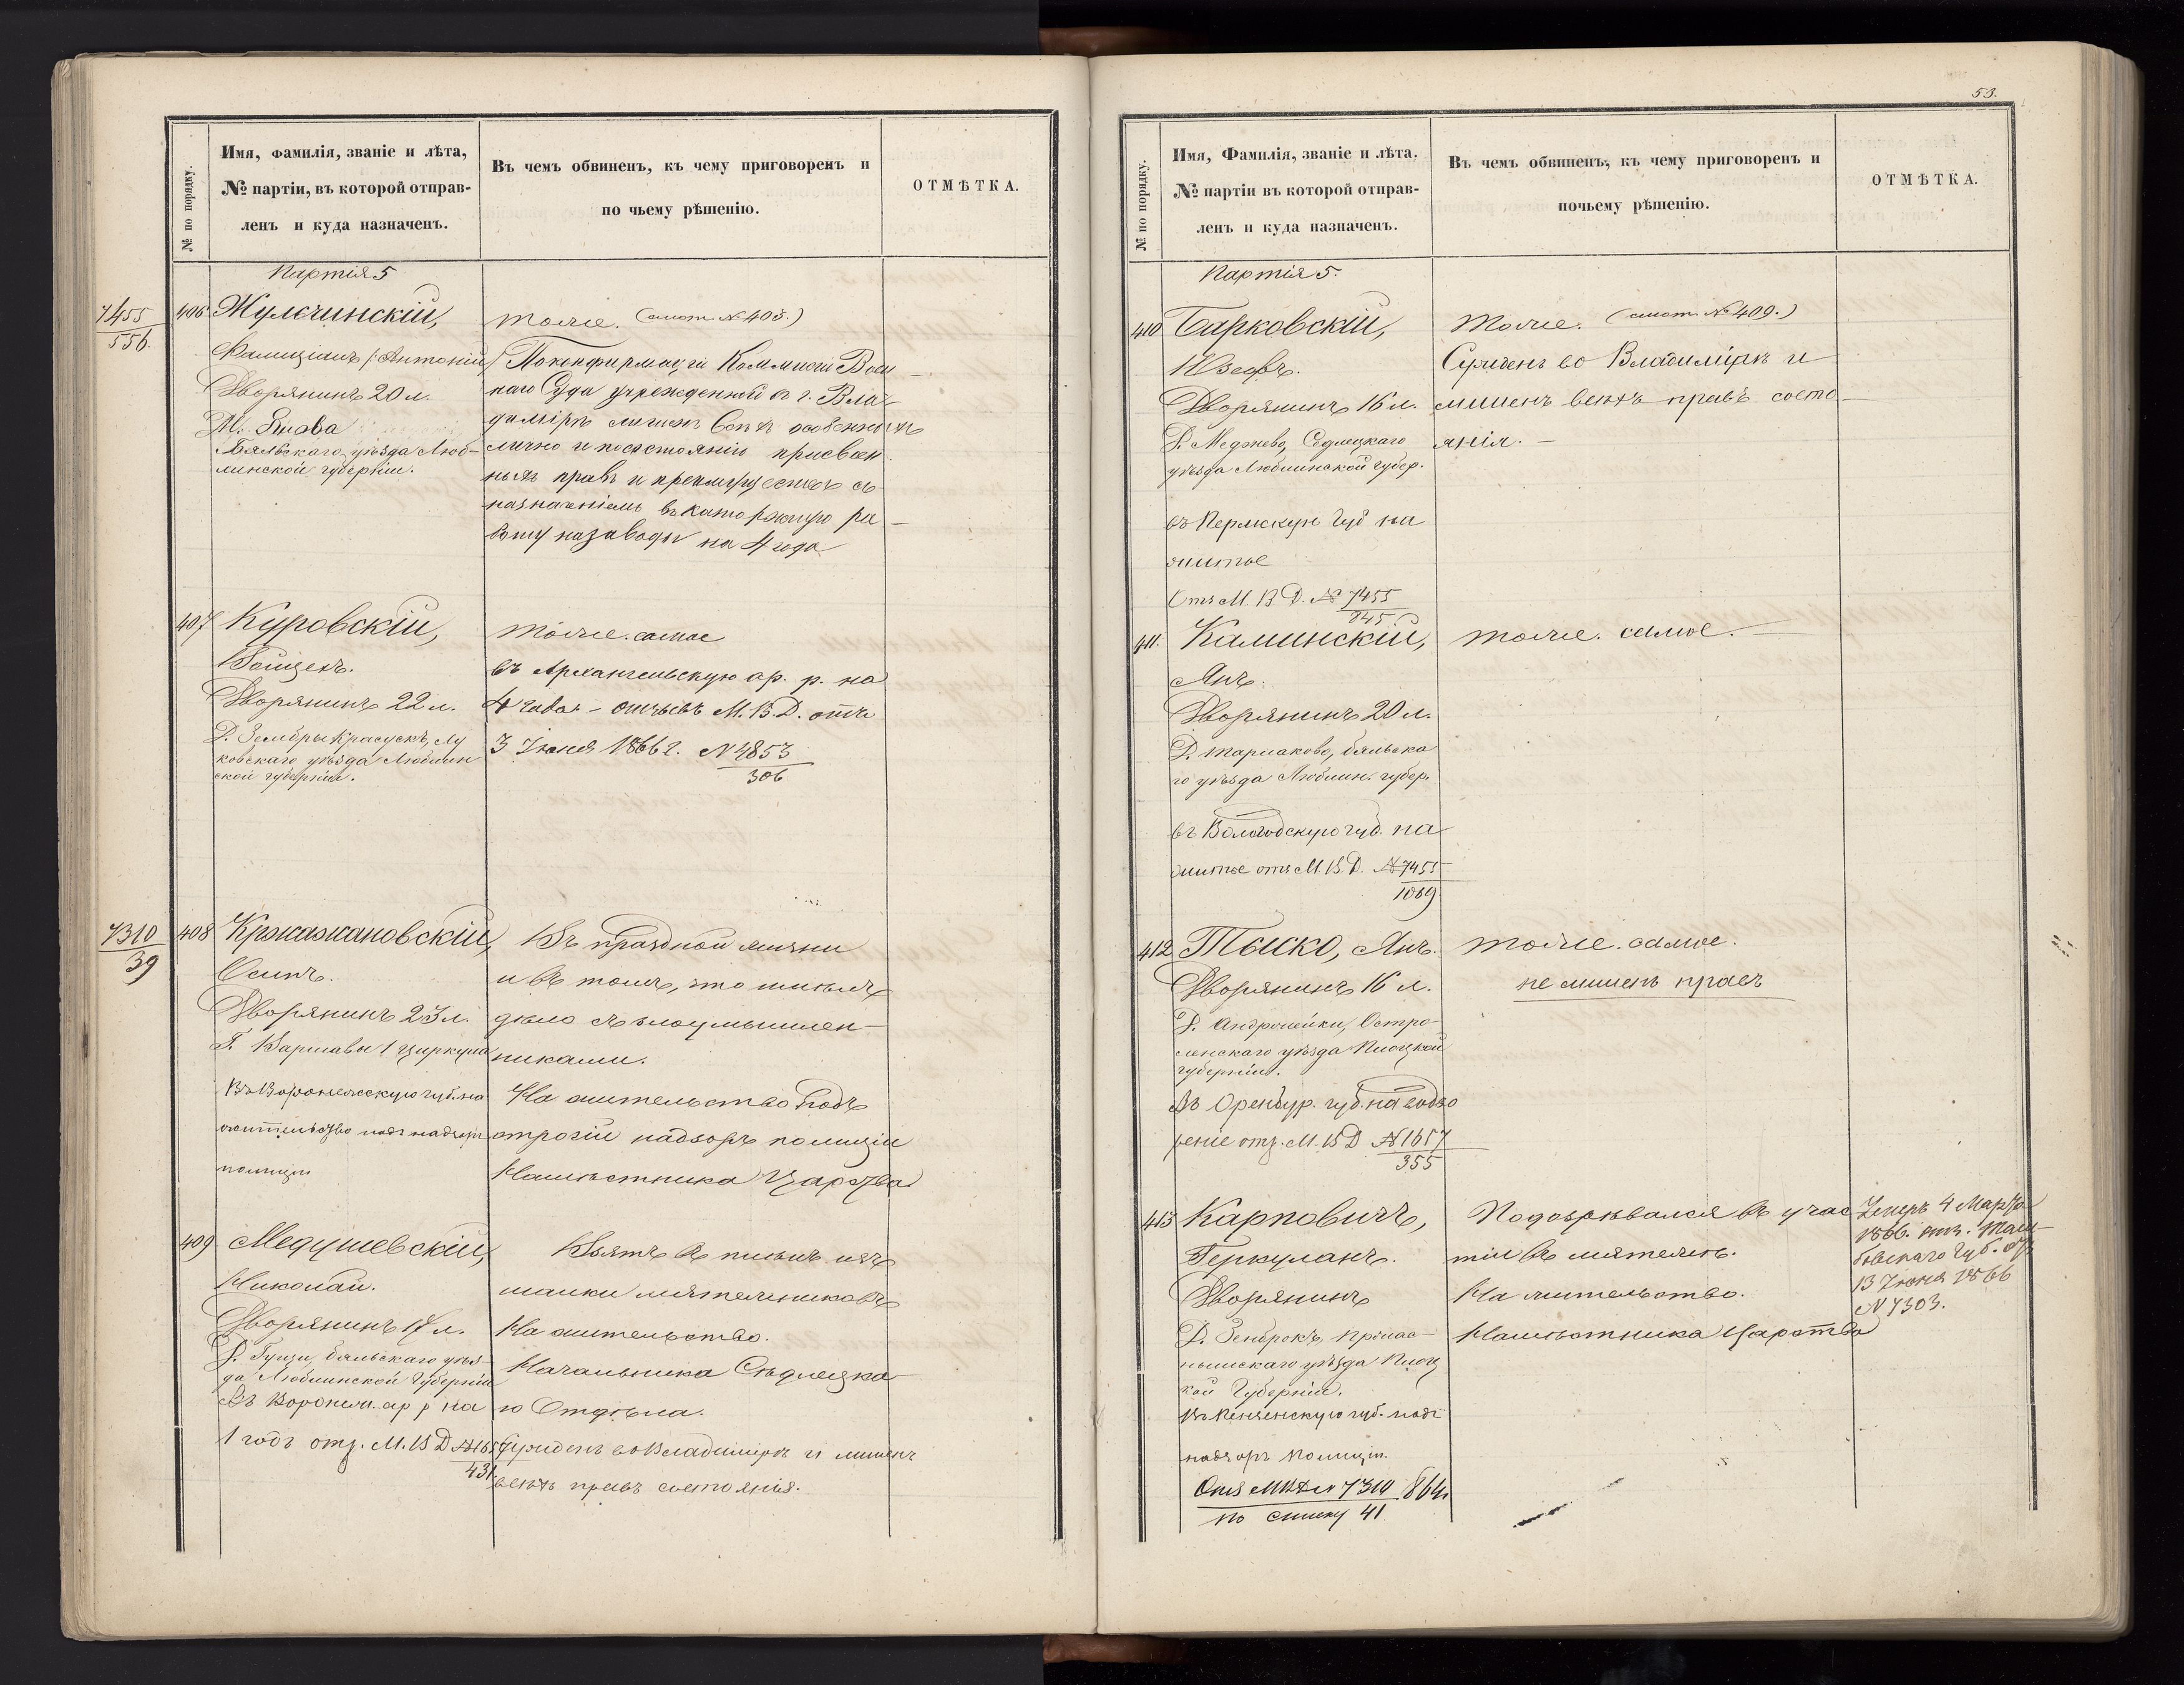 № по порядку.
Имя, фамилія, званіе и лѣта,
№ партіи, въ которой отправ-
ленъ и куда назначенъ.
Въ чемъ обвиненъ, къ чему приговоренъ и
по чьему рѣшенію.
ОТМѢТКА.
Партія 5
7455
556.
406
Жулчинскій,
Фелиціанъ (: Антоній
Дворянинъ 20 л.
М. Янова
Бяльскаго уѣзда Люб-
линской губерніи.
тоже. (смот. № 403.)
По конфирмаціи Коммисіи Воен
наго Суда учрежденной въ г. Вла-
димірѣ лишенъ всѣхъ особенныхъ
лично и по состоянію присвоен
ныхъ правъ и преимуществъ съ
назначеніемъ въ каторжную ра-
боту на заводы на 4 года
407
Куровскій,
Войцехъ.
Дворянинъ 22 л.
Д. Зембры Красускъ, Лу
ковскаго уѣзда Люблин
ской губерніи.
тоже. самое
въ Архангельскую ар. р. на
4 года - отзывъ М. В. Д. отъ
3 Іюня 1866 г. № 4853
306
7310
39
408
Кржажановскій,
Осипъ.
Дворянинъ 23 л.
Г. Варшавы 1 Циркула
Въ Воронежскую губ. на
жительство подъ надзоръ
полиціи
Въ праздной жизни
и въ томъ, что имѣлъ
дѣло съ злоумышлен-
никами.
На жительство подъ
строгій надзоръ полиціи
Намѣстника Царства
409
Медушевскій,
Николай.
Дворянинъ 17 л.
Д. Гущи, бяльскаго уѣз-
да Люблинской Губерніи
Въ Воронеж. ар р на
1 годъ отз. М. В Д № 1657
431
Взятъ въ плѣнъ изъ
шайки мятежниковъ
На жительство.
Начальника Сѣдлецка
го Отдѣла.
Сужденъ во Владимірѣ и лишенъ
всѣхъ правъ состоянія.
53.
№ по порядку.
Имя, Фамилія, званіе и лѣта.
№ партіи въ которой отправ-
ленъ и куда назначенъ.
Въ чемъ обвиненъ, къ чему приговоренъ и
почьему рѣшенію.
ОТМѢТКА.
Партія 5.
410
Барковскій,
Юзефъ.
Дворянинъ 16 л.
Д. Меджево, Седлецкаго
уѣзда Люблинской губер.
въ Пермскую Губ на
житье
Отз М. В. Д. № 7455
845.
Тоже. (смот. № 409.)
Сужденъ во Владимірѣ и
лишенъ всѣхъ правъ состо-
янія. -
411.
Каминскій,
Янъ.
Дворянинъ 20 л.
Д. Тармаково, бяльска
го уѣзда Люблин. губер.
въ Вологодскую губ. на
житье отз М. В. Д. № 7455
1069
тоже. самое. -
412
Тыско, Янъ.
Дворянинъ 16 л.
Д. Андрошейки, Остро-
ленскаго уѣзда Плоцкой
губерніи.
Въ Оренбур. губ. на водво
реніе отз. М. В Д № 1657
355
тоже. самое.
не лишенъ правъ
413
Карповичъ,
Геркуланъ.
Дворянинъ
Д. Зенброкъ Прпас-
нышскаго уѣзда Плоц
кой Губерніи.
Въ Пензенскую губ. подъ
надзоръ полиціи.
Отз МВД № 7310 864
по списку 41
Подозрѣвался въ учас
тіи въ мятежѣ.
На жительство.
Намѣстника Царства
4 Марта
1866. отз. Там-
бовскаго Губ. от
13 Іюня 1866
№ 7303.